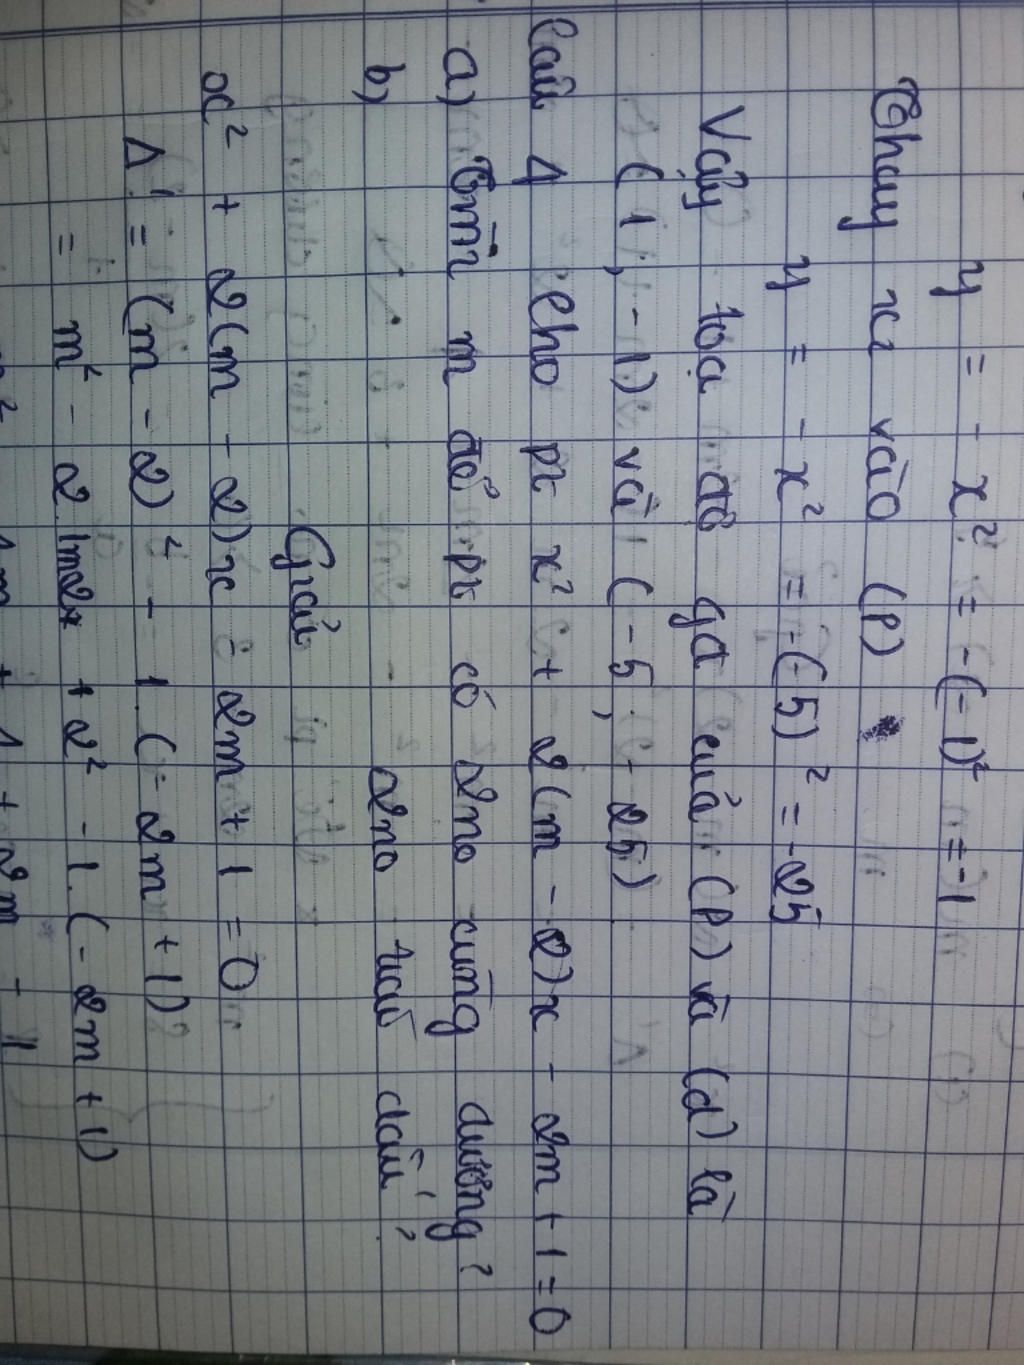 y = - x² = -(-1)² = -1
Thay x₂ vào (P)
y = - x² = -(-5)² = -25
Vậy toạ độ gđ của (P) và (d) là
(1, -1) và (-5, -25)
Câu 4 Cho pt x² + 2(m - 2)x - 2m + 1 = 0
a) Tìm m để pt có 2no cùng dương?
b) 2no trái dấu?
Giải
x² + 2(m - 2)x - 2m + 1 = 0
Δ' = (m - 2)² - 1.(-2m + 1)
= m² - 2.m2 + 2² - 1.(-2m + 1)